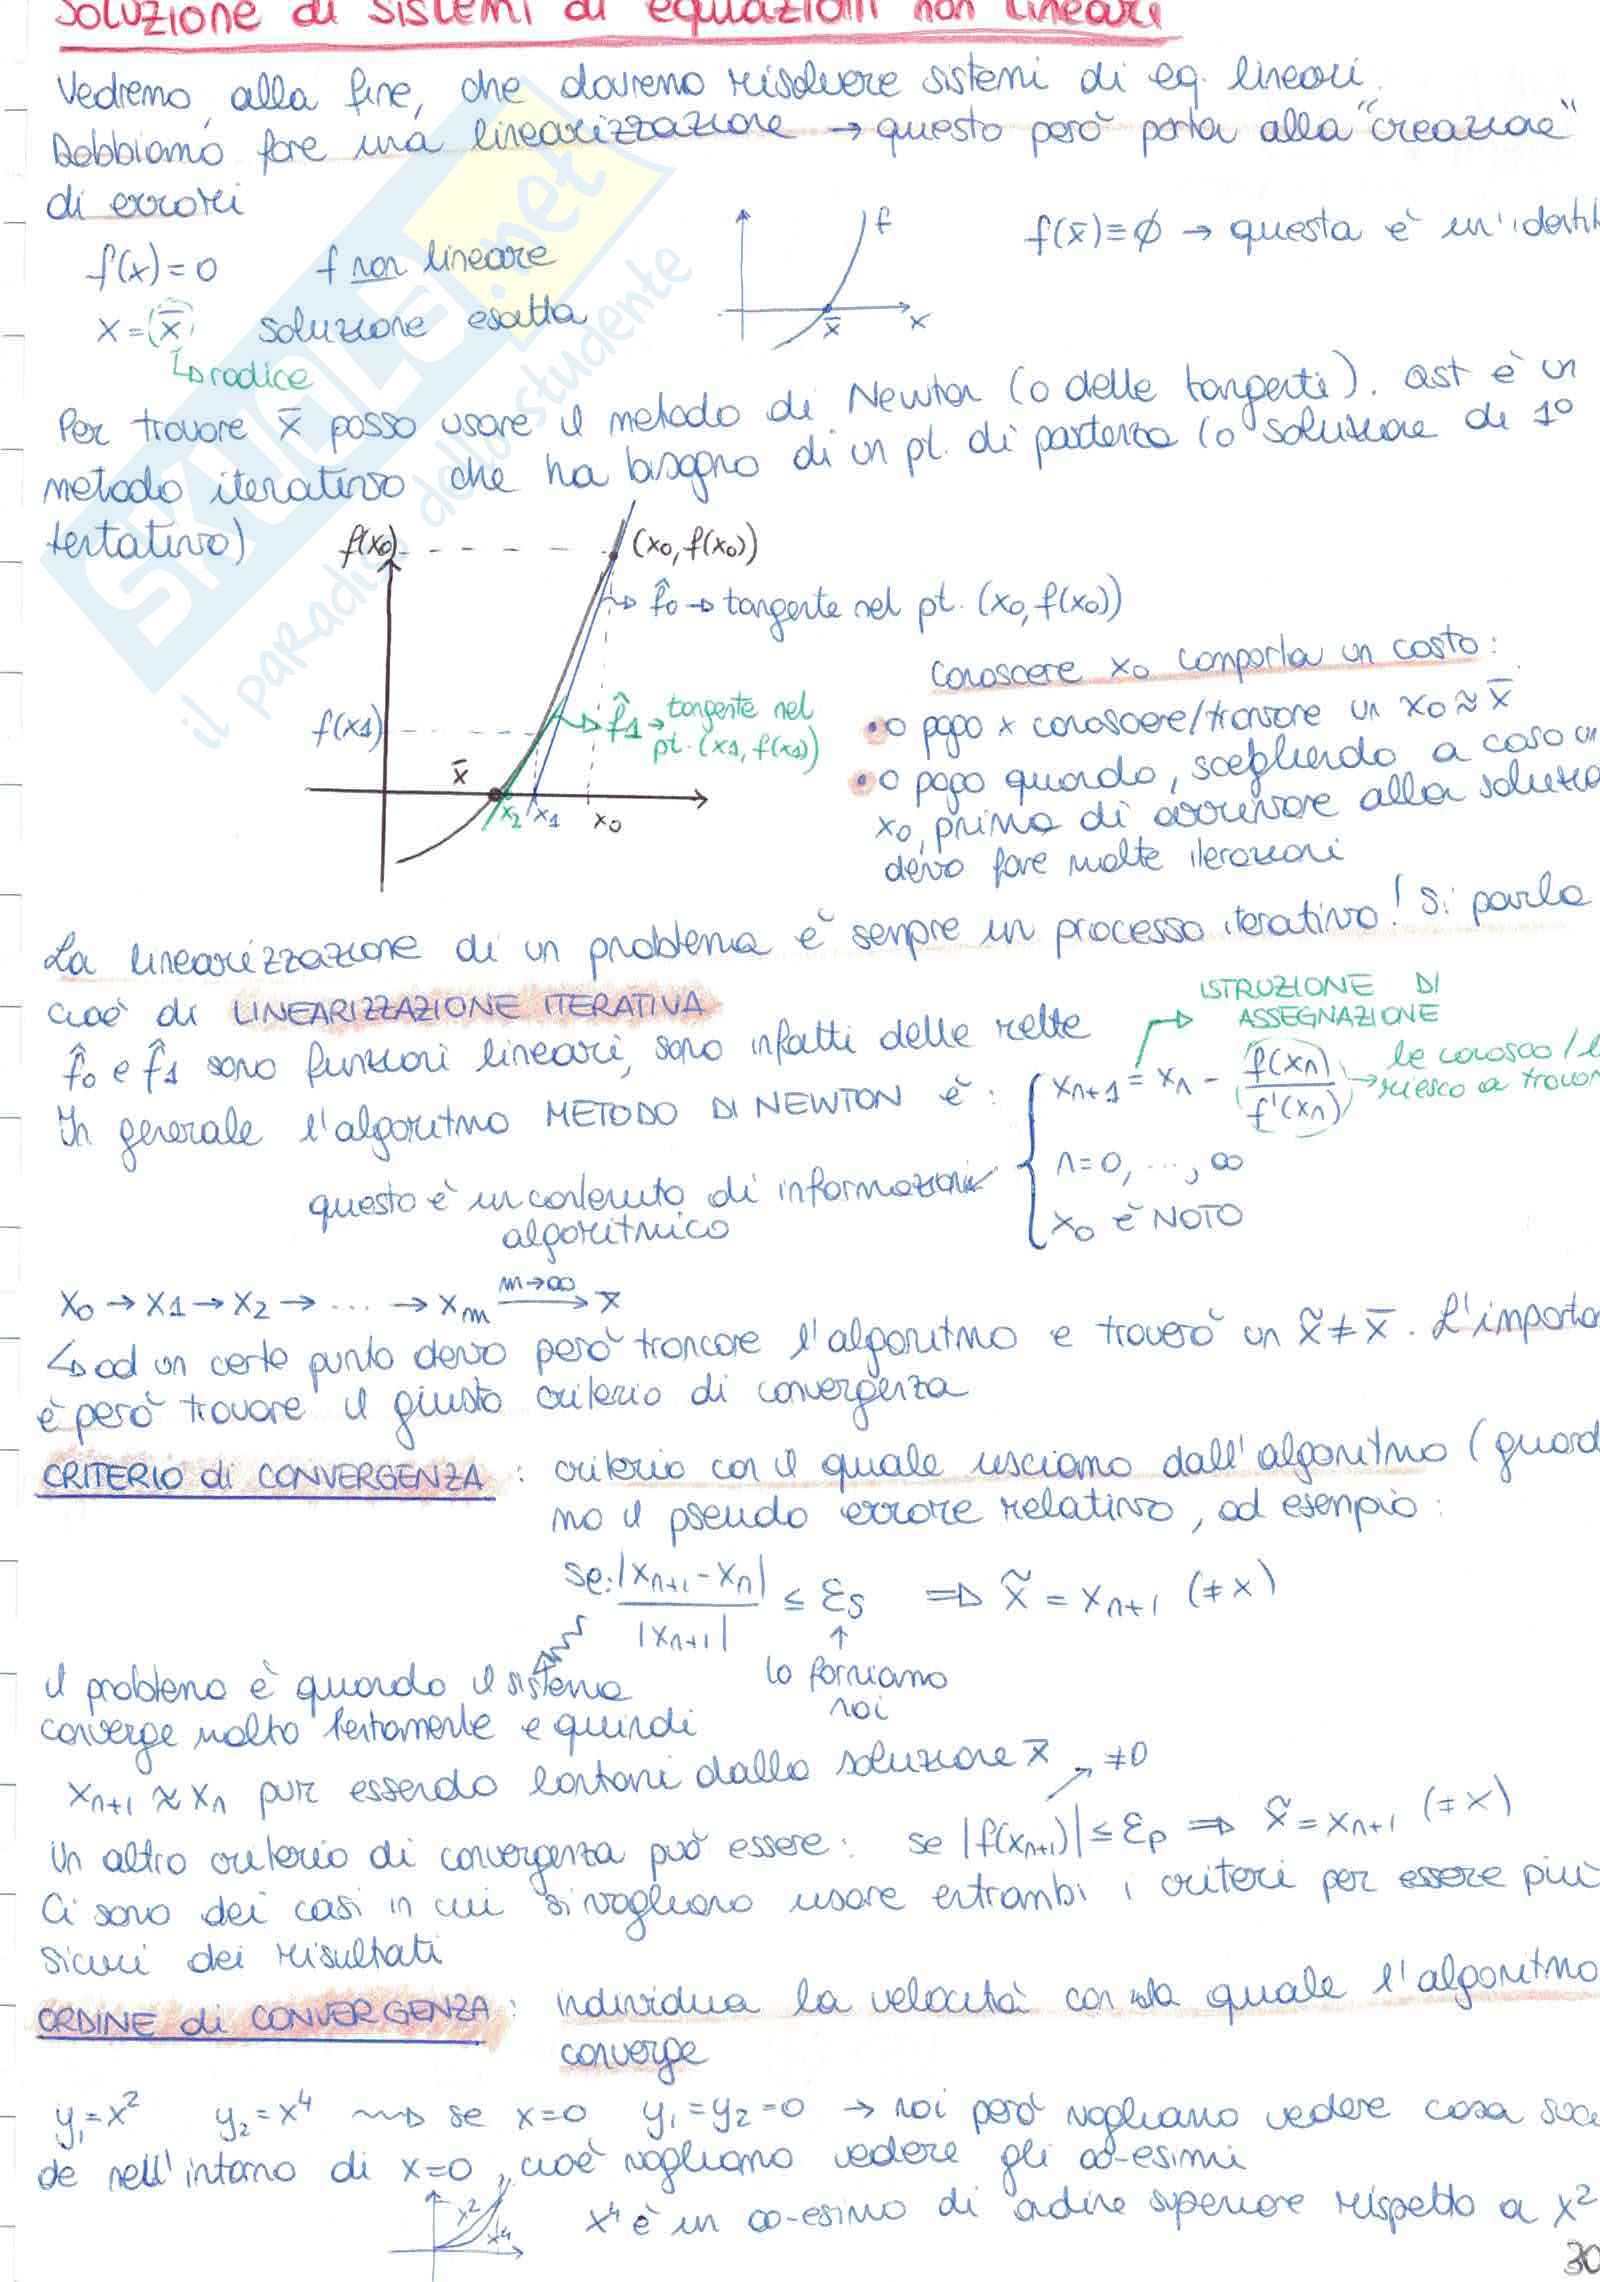 Soluzione di sistemi di equazioni non lineari
Vedremo, alla fine, che dovremo risolvere sistemi di eq. lineari.
Dobbiamo fare una linearizzazione → questo però porta alla "creazione"
di errori
f(x)=0 f non lineare
x=(x̄) soluzione esatta
↳ radice
f
x̄
x
f(x̄)≡∅ → questa è un'identit
Per trovare x̄ posso usare il metodo di Newton (o delle tangenti). Qst è un
metodo iterativo che ha bisogno di un pt. di partenza (o soluzione di 1°
tentativo)
f(x0)
(x0, f(x0))
f̂0 → tangente nel pt. (x0, f(x0))
f(x1)
f̂1 → tangente nel
pt. (x1, f(x1))
x̄
x2 x1 x0
Conoscere x0 comporta un costo:
• o pago x conoscere/trovare un x0 ≈ x̄
• o pago quando, scegliendo a caso un
x0, prima di arrivare alla soluzio
devo fare molte iterazioni
La linearizzazione di un problema è sempre un processo iterativo! Si parla
cioè di LINEARIZZAZIONE ITERATIVA
f̂0 e f̂1 sono funzioni lineari, sono infatti delle rette
ISTRUZIONE DI
ASSEGNAZIONE
In generale l'algoritmo METODO DI NEWTON è: { xn+1 = xn - f(xn)/f'(xn) → le conosco / l
riesco a trovar
n=0, ..., ∞
x0 è NOTO
questo è un contenuto di informazioni
algoritmico
x0 → x1 → x2 → ... → xm m→∞ → x̄
↳ ad un certo punto devo però troncare l'algoritmo e troverò un x̃ ≠ x̄. L'importa
è però trovare il giusto criterio di convergenza
CRITERIO di CONVERGENZA: criterio con il quale usciamo dall'algoritmo (guard
mo il pseudo errore relativo, ad esempio:
se: |xn+1 - xn| / |xn+1| ≤ εs ⇒ x̃ = xn+1 (≠x)
lo forniamo
noi
il problema è quando il sistema
converge molto lentamente e quindi
xn+1 ≈ xn pur essendo lontani dalla soluzione x̄
≠0
Un altro criterio di convergenza può essere: se |f(xn+1)| ≤ εp ⇒ x̃ = xn+1 (≠x)
Ci sono dei casi in cui si vogliono usare entrambi i criteri per essere più
sicuri dei risultati
ORDINE di CONVERGENZA: individua la velocità con la quale l'algoritmo
converge
y1=x² y2=x⁴ ⇝ se x=0 y1=y2=0 → noi però vogliamo vedere cosa succe
de nell'intorno di x=0, cioè vogliamo vedere gli ∞-esimi
x²
x⁴
x⁴ è un ∞-esimo di ordine superiore rispetto a x²
30
SKUOLA.net
il paradiso dello studente